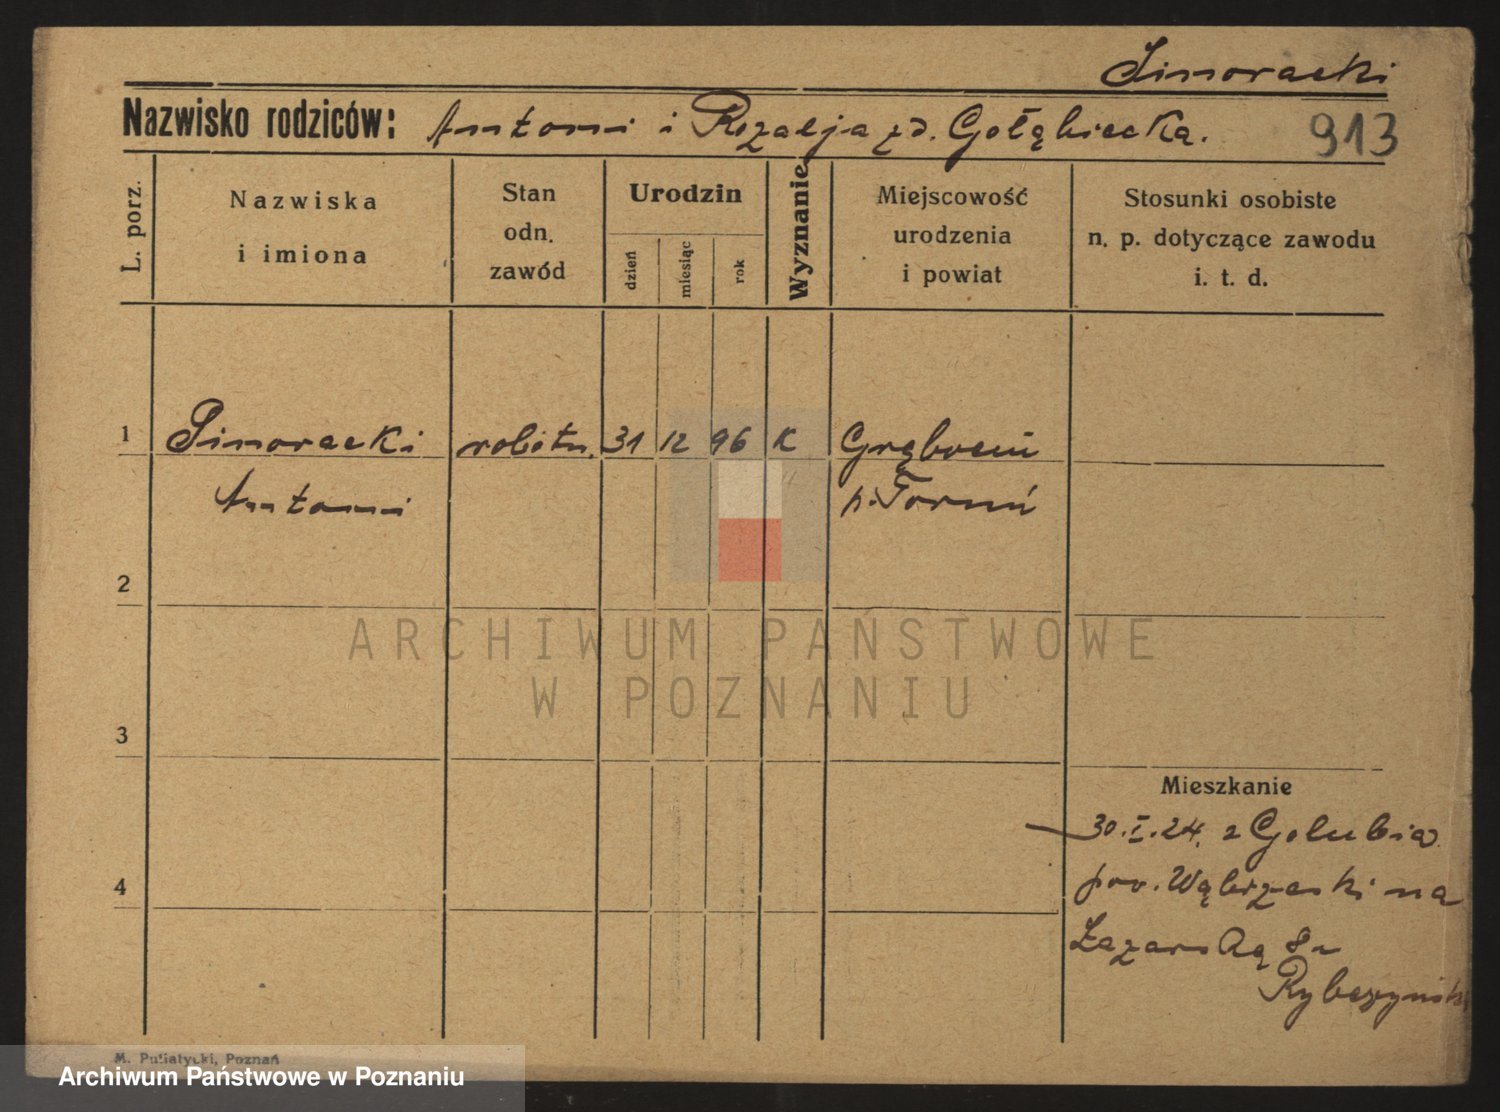 Simoracki
Nazwisko rodziców: Antoni i Rozalja zd. Gołąbiecka. 913
L. porz.
Nazwiska
i imiona
Stan
odn.
zawód
Urodzin
dzień
miesiąc
rok
Wyznanie
Miejscowość
urodzenia
i powiat
Stosunki osobiste
n. p. dotyczące zawodu
i. t. d.
1 robotn. 31 12 96 K Grębocin
Antoni p. Toruń
2
ARCHIWUM PAŃSTWOWE
W POZNANIU
3
Mieszkanie
30.I.24. z Golubia
pow. Wąbrzeski na
4
Łazarską 8 u
M. Putiatycki, Poznań
Archiwum Państwowe w Poznaniu